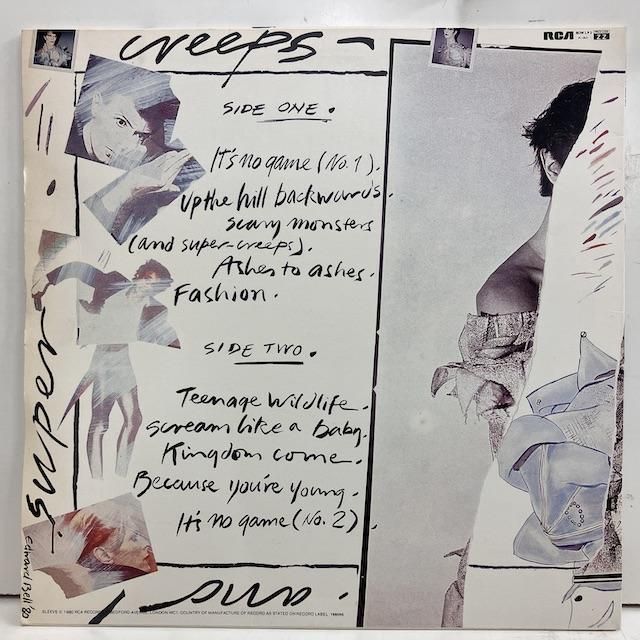 creeps -
RCA BOW LP 2
SIDE ONE.
It's no game (No. 1).
up the hill backwards.
scary monsters
(and super-creeps).
Ashes to ashes.
Fashion.
SIDE TWO.
Teenage Wildlife.
scream like a baby.
Kingdom come.
Because you're young.
It's no game (No. 2).
super
Edward Bell 80
and
SLEEVE © 1980 RCA RECORDS, BEDFORD AVENUE, LONDON WC1. COUNTRY OF MANUFACTURE OF RECORD AS STATED ON RECORD LABEL